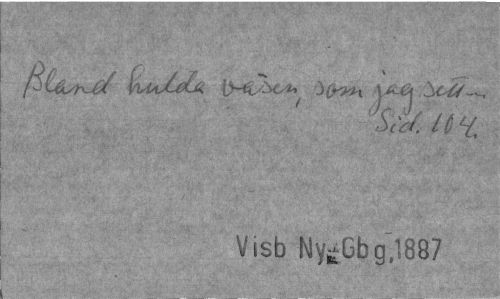 Bland hulda väsen, som jag sett –
Sid. 104.
Visb Ny-Gbg, 1887